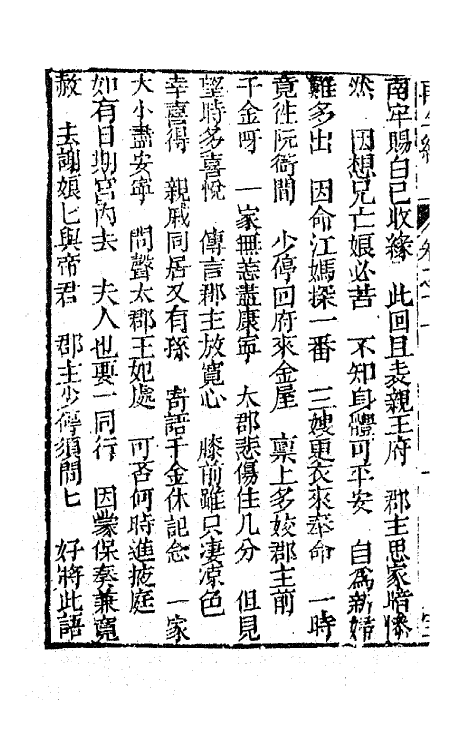 再生緣 卷之十一
南牢賜白已收緣　此回且表親王府　郡主思家暗慘
然　因想兄亡娘必苦　不知身體可平安　自為新婦
難多出　因命江媽探一番　三嫂更衣來奉命　一時
竟徃阮衙間　少停回府來金屋　禀上多姣郡主前
千金呀　一家無恙盡康寧　太郡悲傷住几分　但見
望時多喜悅　傳言郡主放寬心　膝前雖只凄凉色
幸喜得　親戚同居又有孫　寄語千金休記念　一家
大小盡安寧　問聲太郡王妃處　可否何時進掖庭
如有日期宮內去　夫人也要一同行　因蒙保奏兼寬
赦　去謝娘匕與帝君　郡主少停須問匕　好將此語